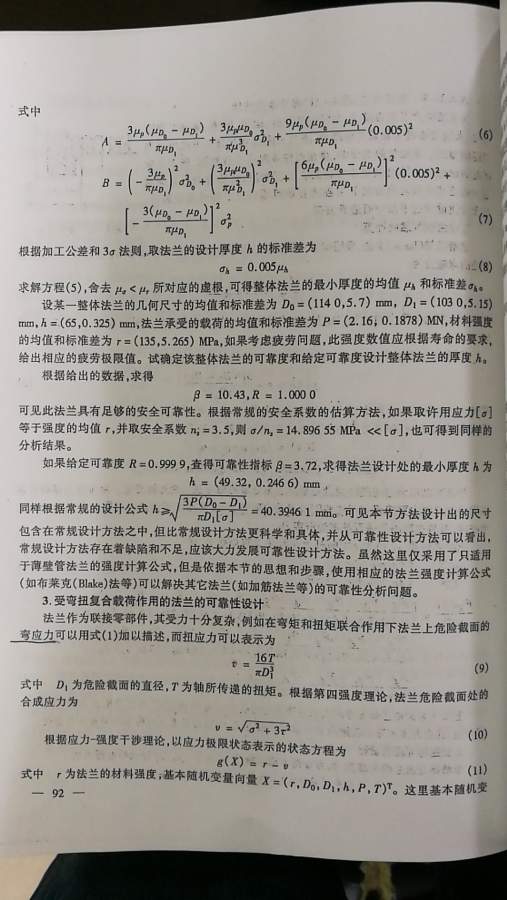 式中
A = \frac{3\mu_p(\mu_{D_0} - \mu_{D_1})}{\pi\mu_{D_1}} + \frac{3\mu_p\mu_{D_0}}{\pi\mu_{D_1}^3}\sigma_{D_1}^2 + \frac{9\mu_p(\mu_{D_0} - \mu_{D_1})}{\pi\mu_{D_1}}(0.005)^2 (6)
B = \left(-\frac{3\mu_p}{\pi\mu_{D_1}}\right)^2\sigma_{D_0}^2 + \left(\frac{3\mu_p\mu_{D_0}}{\pi\mu_{D_1}^2}\right)^2\sigma_{D_1}^2 + \left[\frac{6\mu_p(\mu_{D_0} - \mu_{D_1})}{\pi\mu_{D_1}}\right]^2(0.005)^2 +
\left[-\frac{3(\mu_{D_0} - \mu_{D_1})}{\pi\mu_{D_1}}\right]^2\sigma_p^2 (7)
根据加工公差和 3σ 法则,取法兰的设计厚度 h 的标准差为
σ_h = 0.005μ_h (8)
求解方程(5),舍去 μ_σ < μ_r 所对应的虚根,可得整体法兰的最小厚度的均值 μ_h 和标准差σ_h。
设某一整体法兰的几何尺寸的均值和标准差为 D_0 = (114 0,5.7) mm, D_1 = (103 0,5.15)
mm, h = (65,0.325) mm,法兰承受的载荷的均值和标准差为 P = (2.16, 0.1878) MN,材料强度
的均值和标准差为 r = (135,5.265) MPa,如果考虑疲劳问题,此强度数值应根据寿命的要求,
给出相应的疲劳极限值。试确定该整体法兰的可靠度和给定可靠度设计整体法兰的厚度 h。
根据给出的数据,求得
β = 10.43, R = 1.000 0
可见此法兰具有足够的安全可靠性。根据常规的安全系数的估算方法,如果取许用应力[σ]
等于强度的均值 r,并取安全系数 n_s = 3.5,则 σ/n_s = 14.896 55 MPa << [σ],也可得到同样的
分析结果。
如果给定可靠度 R = 0.999 9,查得可靠性指标 β = 3.72,求得法兰设计处的最小厚度 h 为
h = (49.32, 0.246 6) mm
同样根据常规的设计公式 h ≥ \sqrt{\frac{3P(D_0 - D_1)}{πD_1[σ]}} = 40.3946 1 mm。可见本节方法设计出的尺寸
包含在常规设计方法之中,但比常规设计方法更科学和具体,并从可靠性设计方法可以看出,
常规设计方法存在着缺陷和不足,应该大力发展可靠性设计方法。虽然这里仅采用了只适用
于薄壁管法兰的强度计算公式,但是依据本节的思想和步骤,使用相应的法兰强度计算公式
(如布莱克(Blake)法等)可以解决其它法兰(如加筋法兰等)的可靠性分析问题。
3. 受弯扭复合载荷作用的法兰的可靠性设计
法兰作为联接零部件,其受力十分复杂,例如在弯矩和扭矩联合作用下法兰上危险截面的
弯应力可以用式(1)加以描述,而扭应力可以表示为
τ = \frac{16T}{πD_1^3} (9)
式中 D_1 为危险截面的直径,T 为轴所传递的扭矩。根据第四强度理论,法兰危险截面处的
合成应力为
υ = \sqrt{σ^2 + 3τ^2} (10)
根据应力-强度干涉理论,以应力极限状态表示的状态方程为
g(X) = r - υ (11)
式中 r 为法兰的材料强度,基本随机变量向量 X = (r, D_0, D_1, h, P, T)^T。这里基本随机变
— 92 —